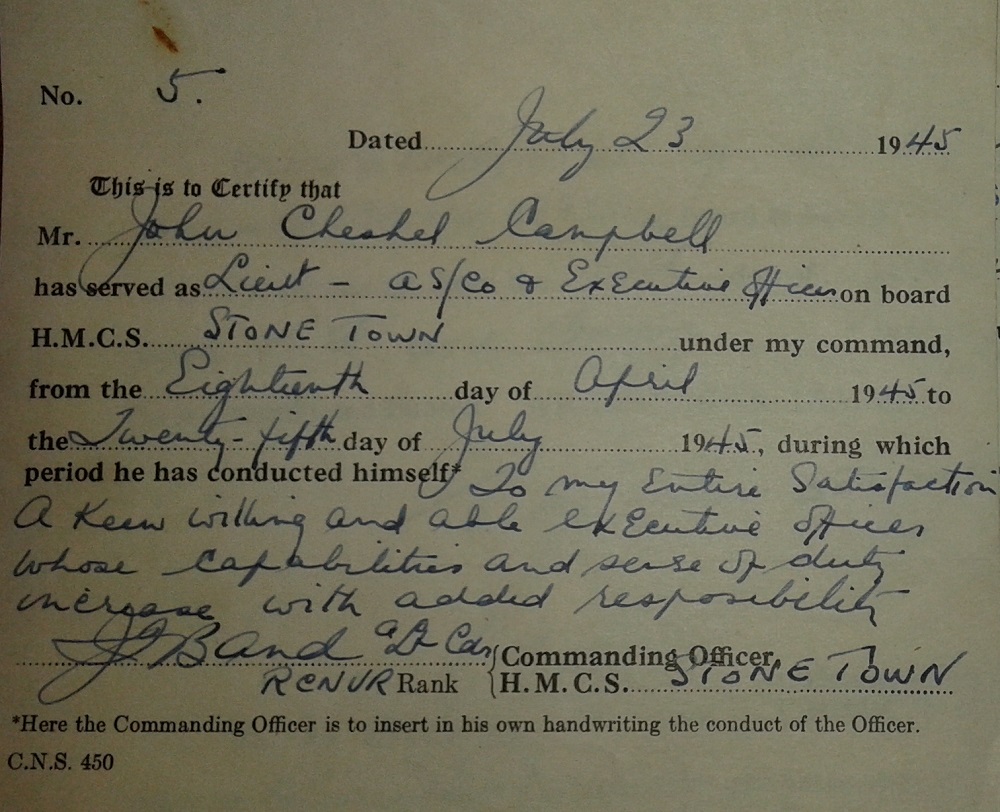 No. 5.
Dated July 23 1945
This is to Certify that
Mr. John Cheshel Campbell
has served as Lieut - AS/Co & Executive Officer on board
H.M.C.S. STONE TOWN under my command,
from the Eighteenth day of April 1945 to
the Twenty-fifth day of July 1945, during which
period he has conducted himself* To my Entire Satisfaction
A Keen willing and able executive officer
whose capabilities and sense of duty
increase with added resposibility
Band a/Lt Cdr Commanding Officer,
RCNVR Rank H.M.C.S. STONE TOWN
*Here the Commanding Officer is to insert in his own handwriting the conduct of the Officer.
C.N.S. 450